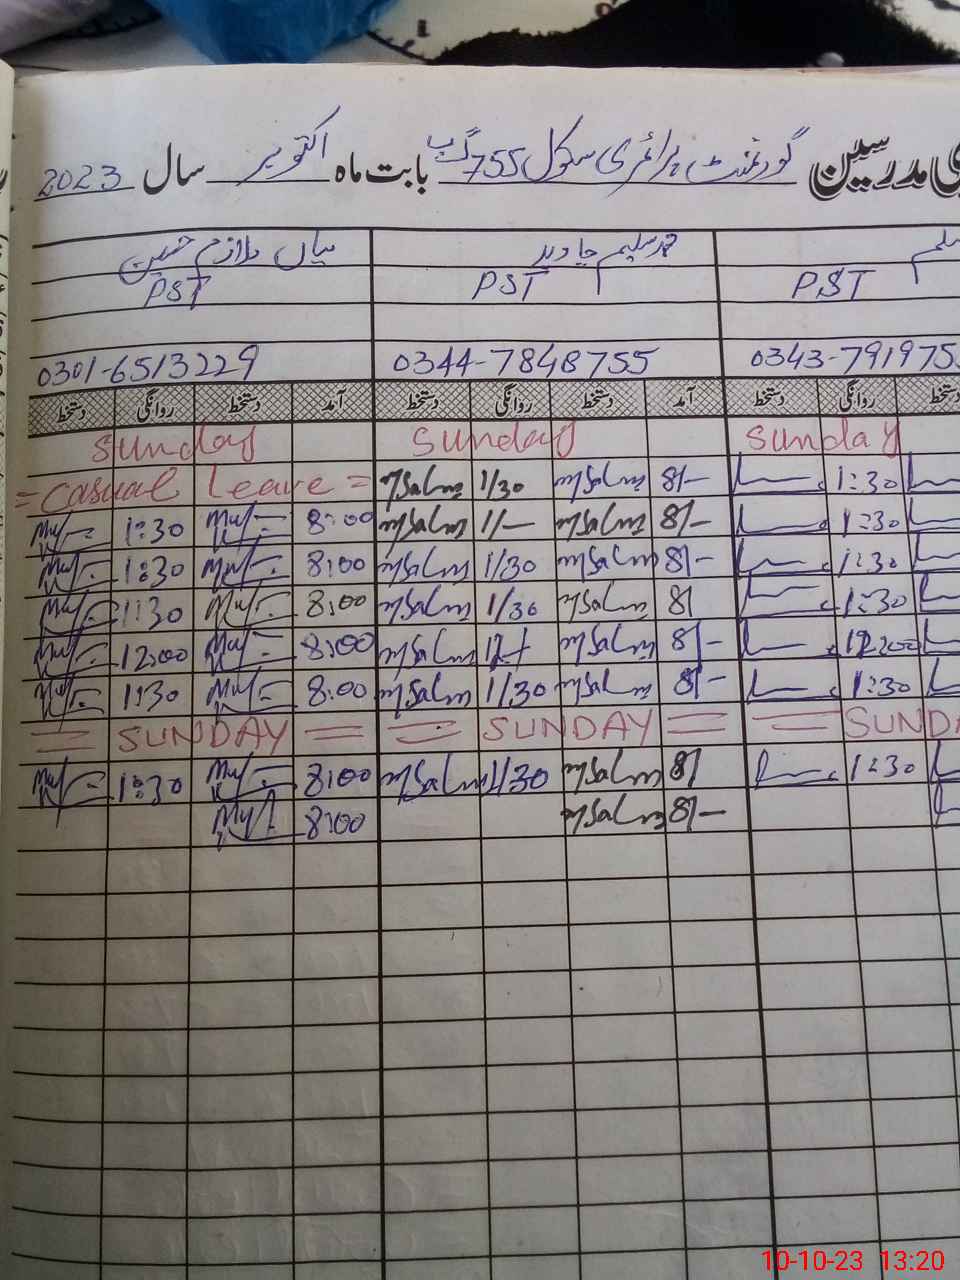 مدرسین گورنمنٹ پرائمری سکول 755 گ ب بابت ماہ اکتوبر سال 2023
محمد سلیم جاوید میاں ملازم حسین
PST PST PST
0301-6513229 0344-7848755 0343-791975
دستخط روانگی دستخط آمد دستخط روانگی دستخط آمد دستخط روانگی دستخط
Sunday Sunday Sunday
= Casual Leave = MSalm 1/30 MSalm 8/- 1:30
1:30 8:00 MSalm 1/- MSalm 8/- 1:30
1:30 8:00 MSalm 1/30 MSalm 8/- 1:30
1:30 8:00 MSalm 1/30 MSalm 8/ 1:30
12:00 8:00 MSalm MSalm 8/- 12:00
1:30 8:00 MSalm 1/30 MSalm 8/- 1:30
= SUNDAY = = SUNDAY = = SUNDA
1:30 8:00 MSalm 1/30 MSalm 8/ 1:30
8:00 MSalm 8/-
10-10-23 13:20